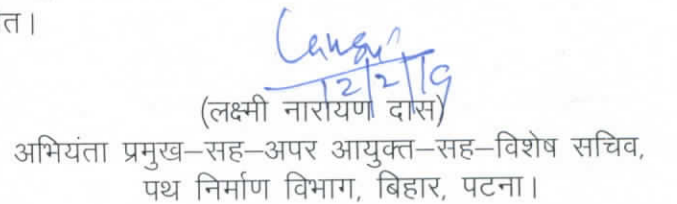 त।
12/2/19
(लक्ष्मी नारायण दास)
अभियंता प्रमुख–सह–अपर आयुक्त–सह–विशेष सचिव,
पथ निर्माण विभाग, बिहार, पटना।